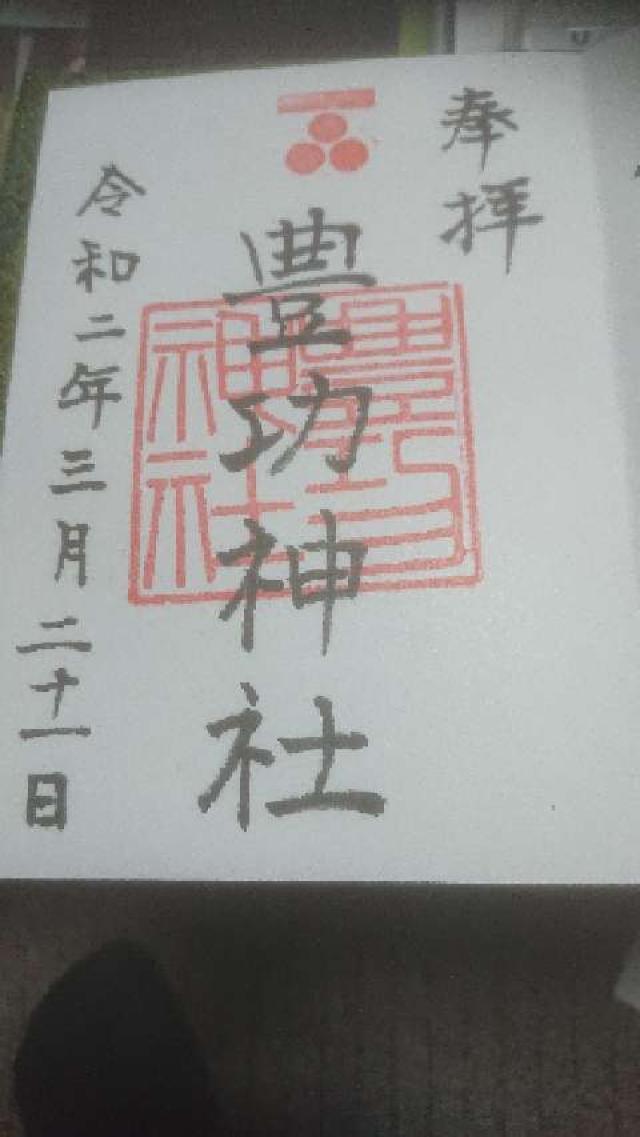 奉拝
豊功神社
豊功神社
令和二年三月二十一日